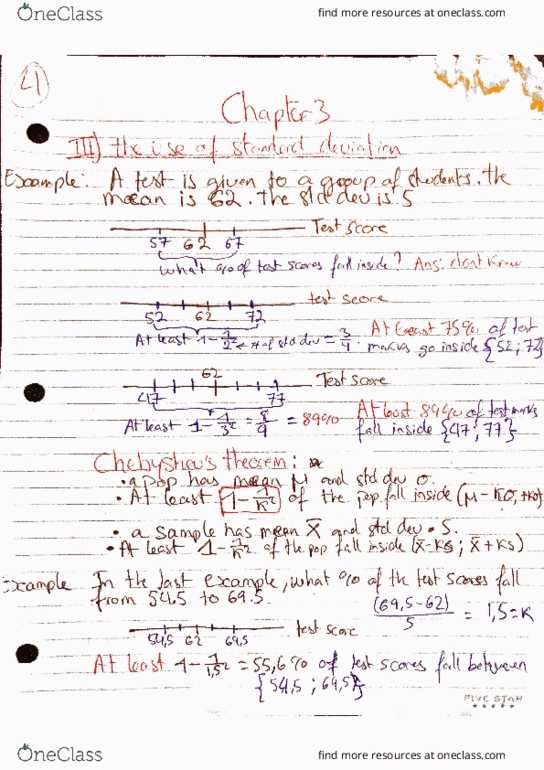 OneClass
find more resources at oneclass.com
Chapter 3
III) the use of standard deviation
Example: A test is given to a group of students. the
mean is 62. the std dev is 5
Test score
57 62 67
What % of test scores fall inside? Ans: dont know
test score
52 62 72
At least 1 - 1/2² ← # of std dev = 3/4. At least 75% of test
marks go inside {52 ; 72}
62
Test score
47 77
At least 1 - 1/3² = 8/9 = 89% At least 89% of test marks
fall inside {47 ; 77}
Chebyshev's theorem:
• a pop has mean μ and std dev σ.
• At least 1 - 1/K² of the pop fall inside (μ - Kσ, +Kσ)
• a sample has mean X̄ and std dev • S.
• At least 1 - 1/K² of the pop fall inside (X̄-KS ; X̄+KS)
Example In the last example, what % of the test scores fall
from 54.5 to 69.5.
(69,5-62)/5 = 1,5 = K
54,5 62 69,5 test score
At least 1 - 1/1,5² = 55,6% of test scores fall between
{54,5 ; 69,5}
FIVE STAR
OneClass
find more resources at oneclass.com